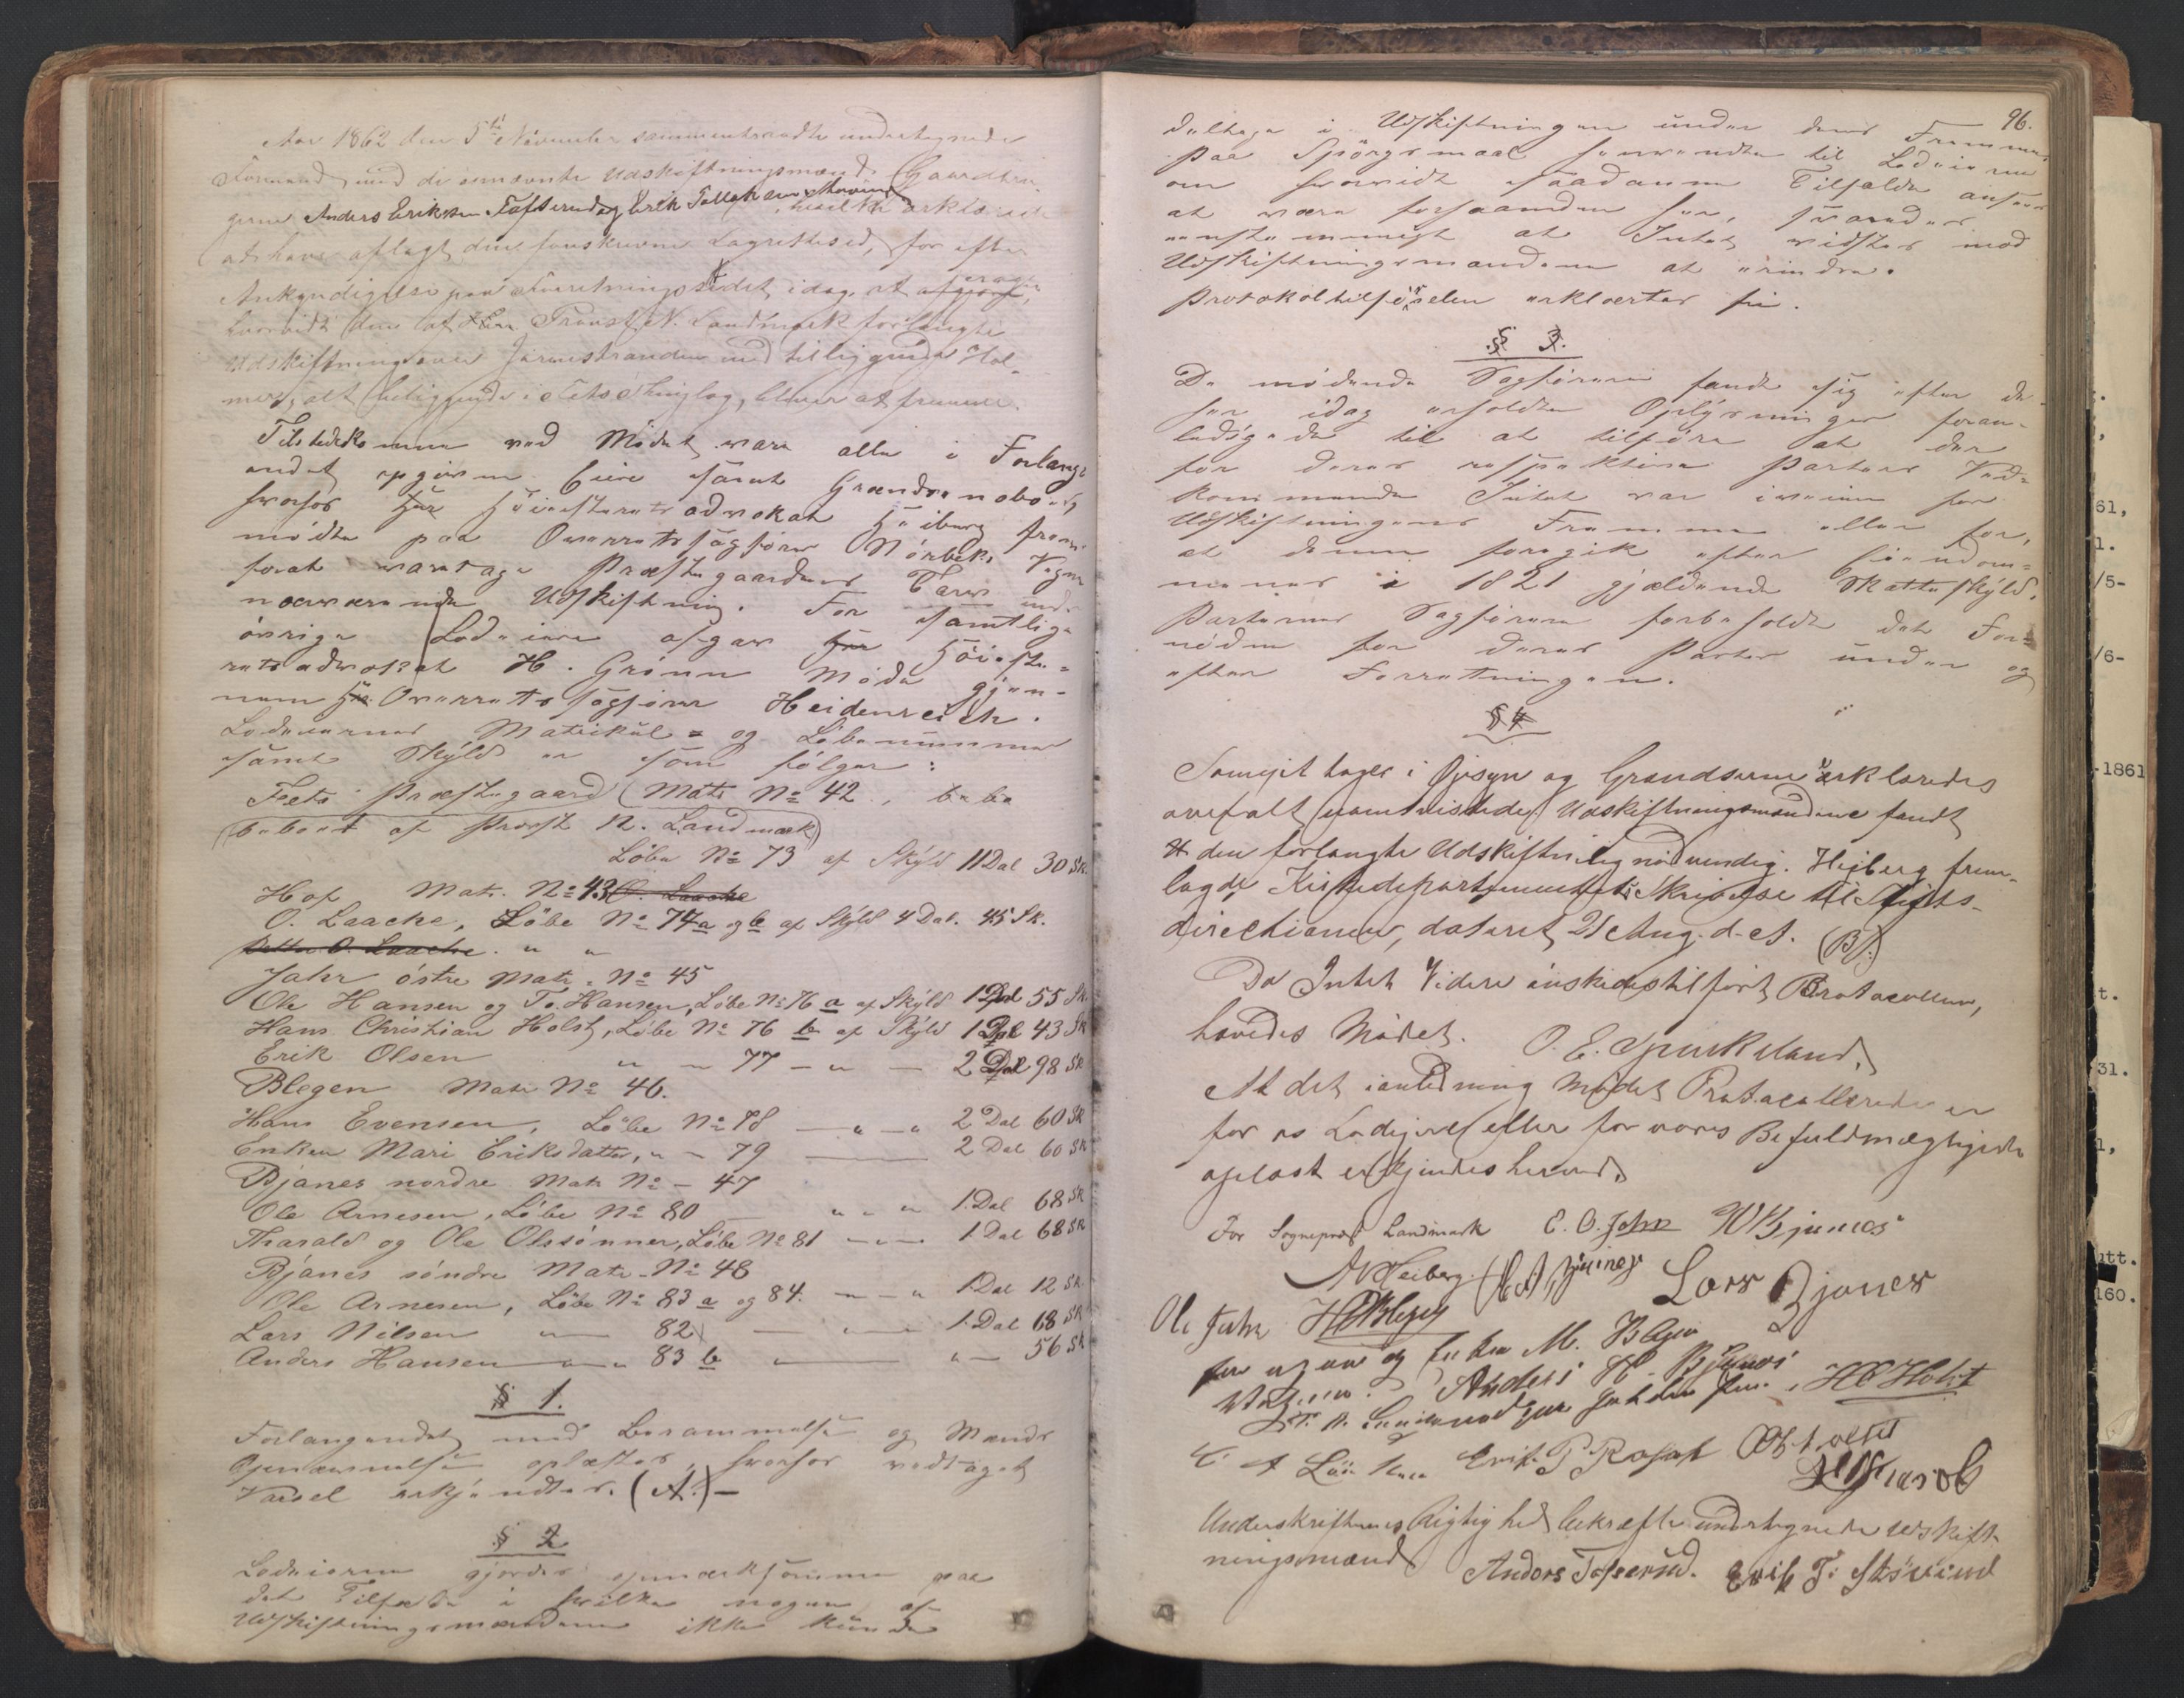 Aar 1862 den 5te November sammentraadte undertegnede
Formand med de opnævnte Udskiftningsmænd (Gaardbru-
gerne Anders Eriksen Tafterud og Erik Tollefsen Støvind, hvilke erklærede
at have aflagt den foreskrevne Lagrettesed, for efter
Ankyndigelse paa Forretningsstedet idag at afgjøre,
hvorvidt den af Herr Provst N. Landmark forlangte
Udskiftning over Jarenstranden med tilliggende Hol-
mer, alt beliggende i Fets Thinglag, bliver at fremme.
Tilstedekomne ved Mødet vare alle i Forlang-
endet opgivne Eiere samt Grændsenaboer,
hvorhos Hr Høiesterets advokat Heiberg frem-
mødte paa Overretssagfører Nørbeks Vegne
forat varetage Præstegaardens Tarv under
nærværende Udskiftning. For samtlige
øvrige Lodeiere afgav Hr Høieste-
retsadvokat H. Grønn Møde gjen-
nem Hr. Overretssagfører Heidenreich.
Lodeiernes Matrikul- og Løbenummer
samt Skyld er som følger:
Feets Præstegaard (Matr No 42, bebo
(beboet af Provst N. Landmark)
Løbe No 73 af Skyld 11 Dal 30 Sk.
Hof Matr. No 43 O. Laache
O. Laache, Løbe No 74 a og b af Skyld 4 Dal. 45 Sk.
O. Laache. " "
Jahr østre Matr. No 45
Ole Hansen og To. Hansen, Løbe No 76 a af Skyld 1 Dal 55 Sk
Hans Christian Holst, Løbe No 76 b af Skyld 1 Dal 43 Sk
Erik Olsen " — 77 — " — 2 Dal 98 Sk
Blegen Matr No 46.
Hans Evensen, Løbe No 78 — " — " 2 Dal 60 Sk
Enken Mari Eriksdatter, " — 79 — 2 Dal 60 Sk
Bjanes nordre Matr No — 47
Ole Arnesen, Løbe No 80 — " — " 1. Dal 68 Sk
Tharald og Ole Olssønner, Løbe No 81 — " — 1 Dal 68 Sk
Bjanes søndre Matr. No 48
Ole Arnesen, Løbe No 83 a og 84. — " — " 1 Dal 12 Sk.
Lars Nilsen " — 82 — " — 1. Dal 68 Sk
Anders Hansen — " — " 83 b " — " — 56 Sk
§ 1.
Forlangendet med Berammelse og Mænds
Opnævnelse oplæstes, hvorhos vedtaget
Varsel erkjendtes. (A.) —
§ 2
Lodeierne gjordes opmærksomme paa
det Tilfælde i hvilke nogen af
Udskiftningsmændene ikke kunde
96.
deltage i Udskiftningen under dens Fremme,
paa Spørgsmaal henvendte til Lodeierne
om hvorvidt saadanne Tilfælde ansees
at være forhaanden her, svaredes
eenstemmigt at Intet vidstes mod
Udskiftningsmændene at erindre.
Protokoltilførselen erklærtes fri.
§ 3.
De mødende Sagførere fandt sig efter de
her idag erholdte Oplysninger foran-
ledigede til at tilføre at der
for deres respektive Parters Ved-
kommende Intet var iveien for
Udskiftningens Fremme eller for,
at denne foregik efter Eiendom-
menes i 1821 gjældende Matteskyld.
Parternes Sagførere forbeholdt det For-
nødne for deres Parter under og
efter Forretningen.
§ 4
Samgit toges i Øjesyn og Grændserne erklæredes
overalt uomtvistede. Udskiftningsmændene fandt
at den forlangte Udskiftning nødvendig. Hejberg frem-
lagde Kirkedepartementets Skrivelse til Stifts-
directionen, dateret 21 Aug. d. A. (B.)
Da Intet Videre ønskedes tilført Protocollen,
hævedes Mødet. O. E. Spirkeland.
At det i anledning Mødet Protocollerede er
for os Lodejere eller for vores Befuldmægtigede
oplæst erkjendes herved.
For Sogneprest Landmark E. O. Jahr
A Heiberg. Lars Bjanes
Ole Jahr H E Blegen
for egen og Enken M. Blegen
Vegne. Anders H. Bjanes H C Holst
Underskrifternes Rigtighed bekræfte undertegnede Udskift-
ningsmænd Anders Tafterud. Erik T. Støvind
61,
1.
/5-
/6-
-1861
t.
31.
1,
itt.
160.